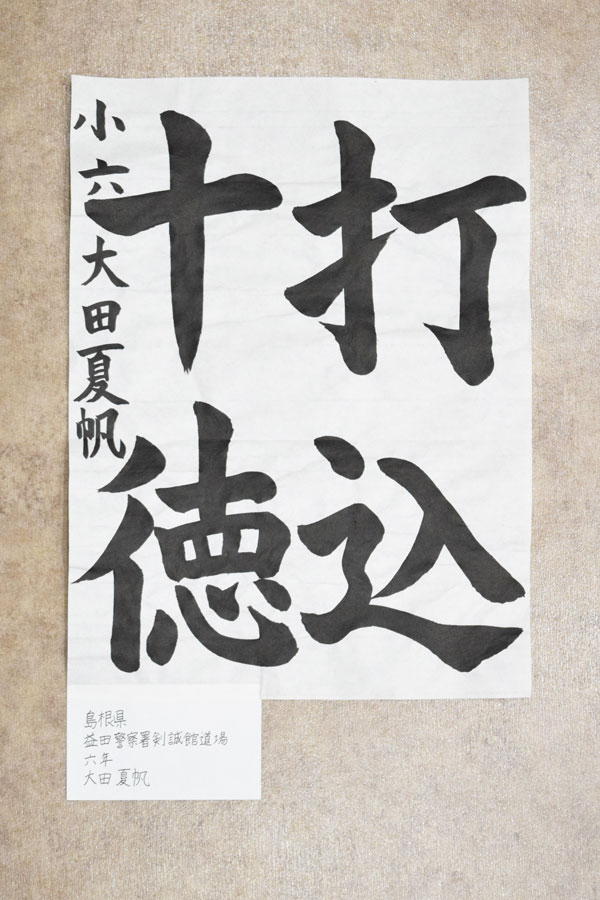 打込
十徳
小六 大田夏帆
島根県
益田警察署剣誠館道場
六年
大田夏帆